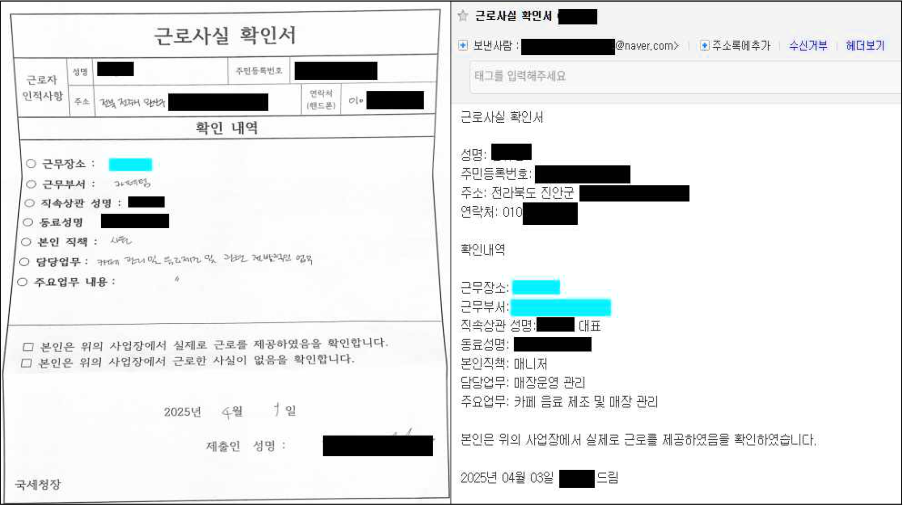 근로사실 확인서
근로자 인적사항
성명
주민등록번호
주소 전북 전주시 완산구
연락처 (핸드폰) 010
확인 내역
○ 근무장소 :
○ 근무부서 :
○ 직속상관 성명 :
○ 동료성명
○ 본인 직책 : 사원
○ 담당업무 : 카페 관리 및 음료제조 및 전반적인 업무
○ 주요업무 내용 : 〃
□ 본인은 위의 사업장에서 실제로 근로를 제공하였음을 확인합니다.
□ 본인은 위의 사업장에서 근로한 사실이 없음을 확인합니다.
2025년 4월 1일
제출인 성명 :
국세청장
근로사실 확인서
보낸사람 : @naver.com>
주소록에추가 수신거부 헤더보기
태그를 입력해주세요
근로사실 확인서
성명:
주민등록번호:
주소: 전라북도 진안군
연락처: 010
확인내역
근무장소:
근무부서:
직속상관 성명: 대표
동료성명:
본인직책: 매니저
담당업무: 매장운영 관리
주요업무: 카페 음료 제조 및 매장 관리
본인은 위의 사업장에서 실제로 근로를 제공하였음을 확인하였습니다.
2025년 04월 03일 드림